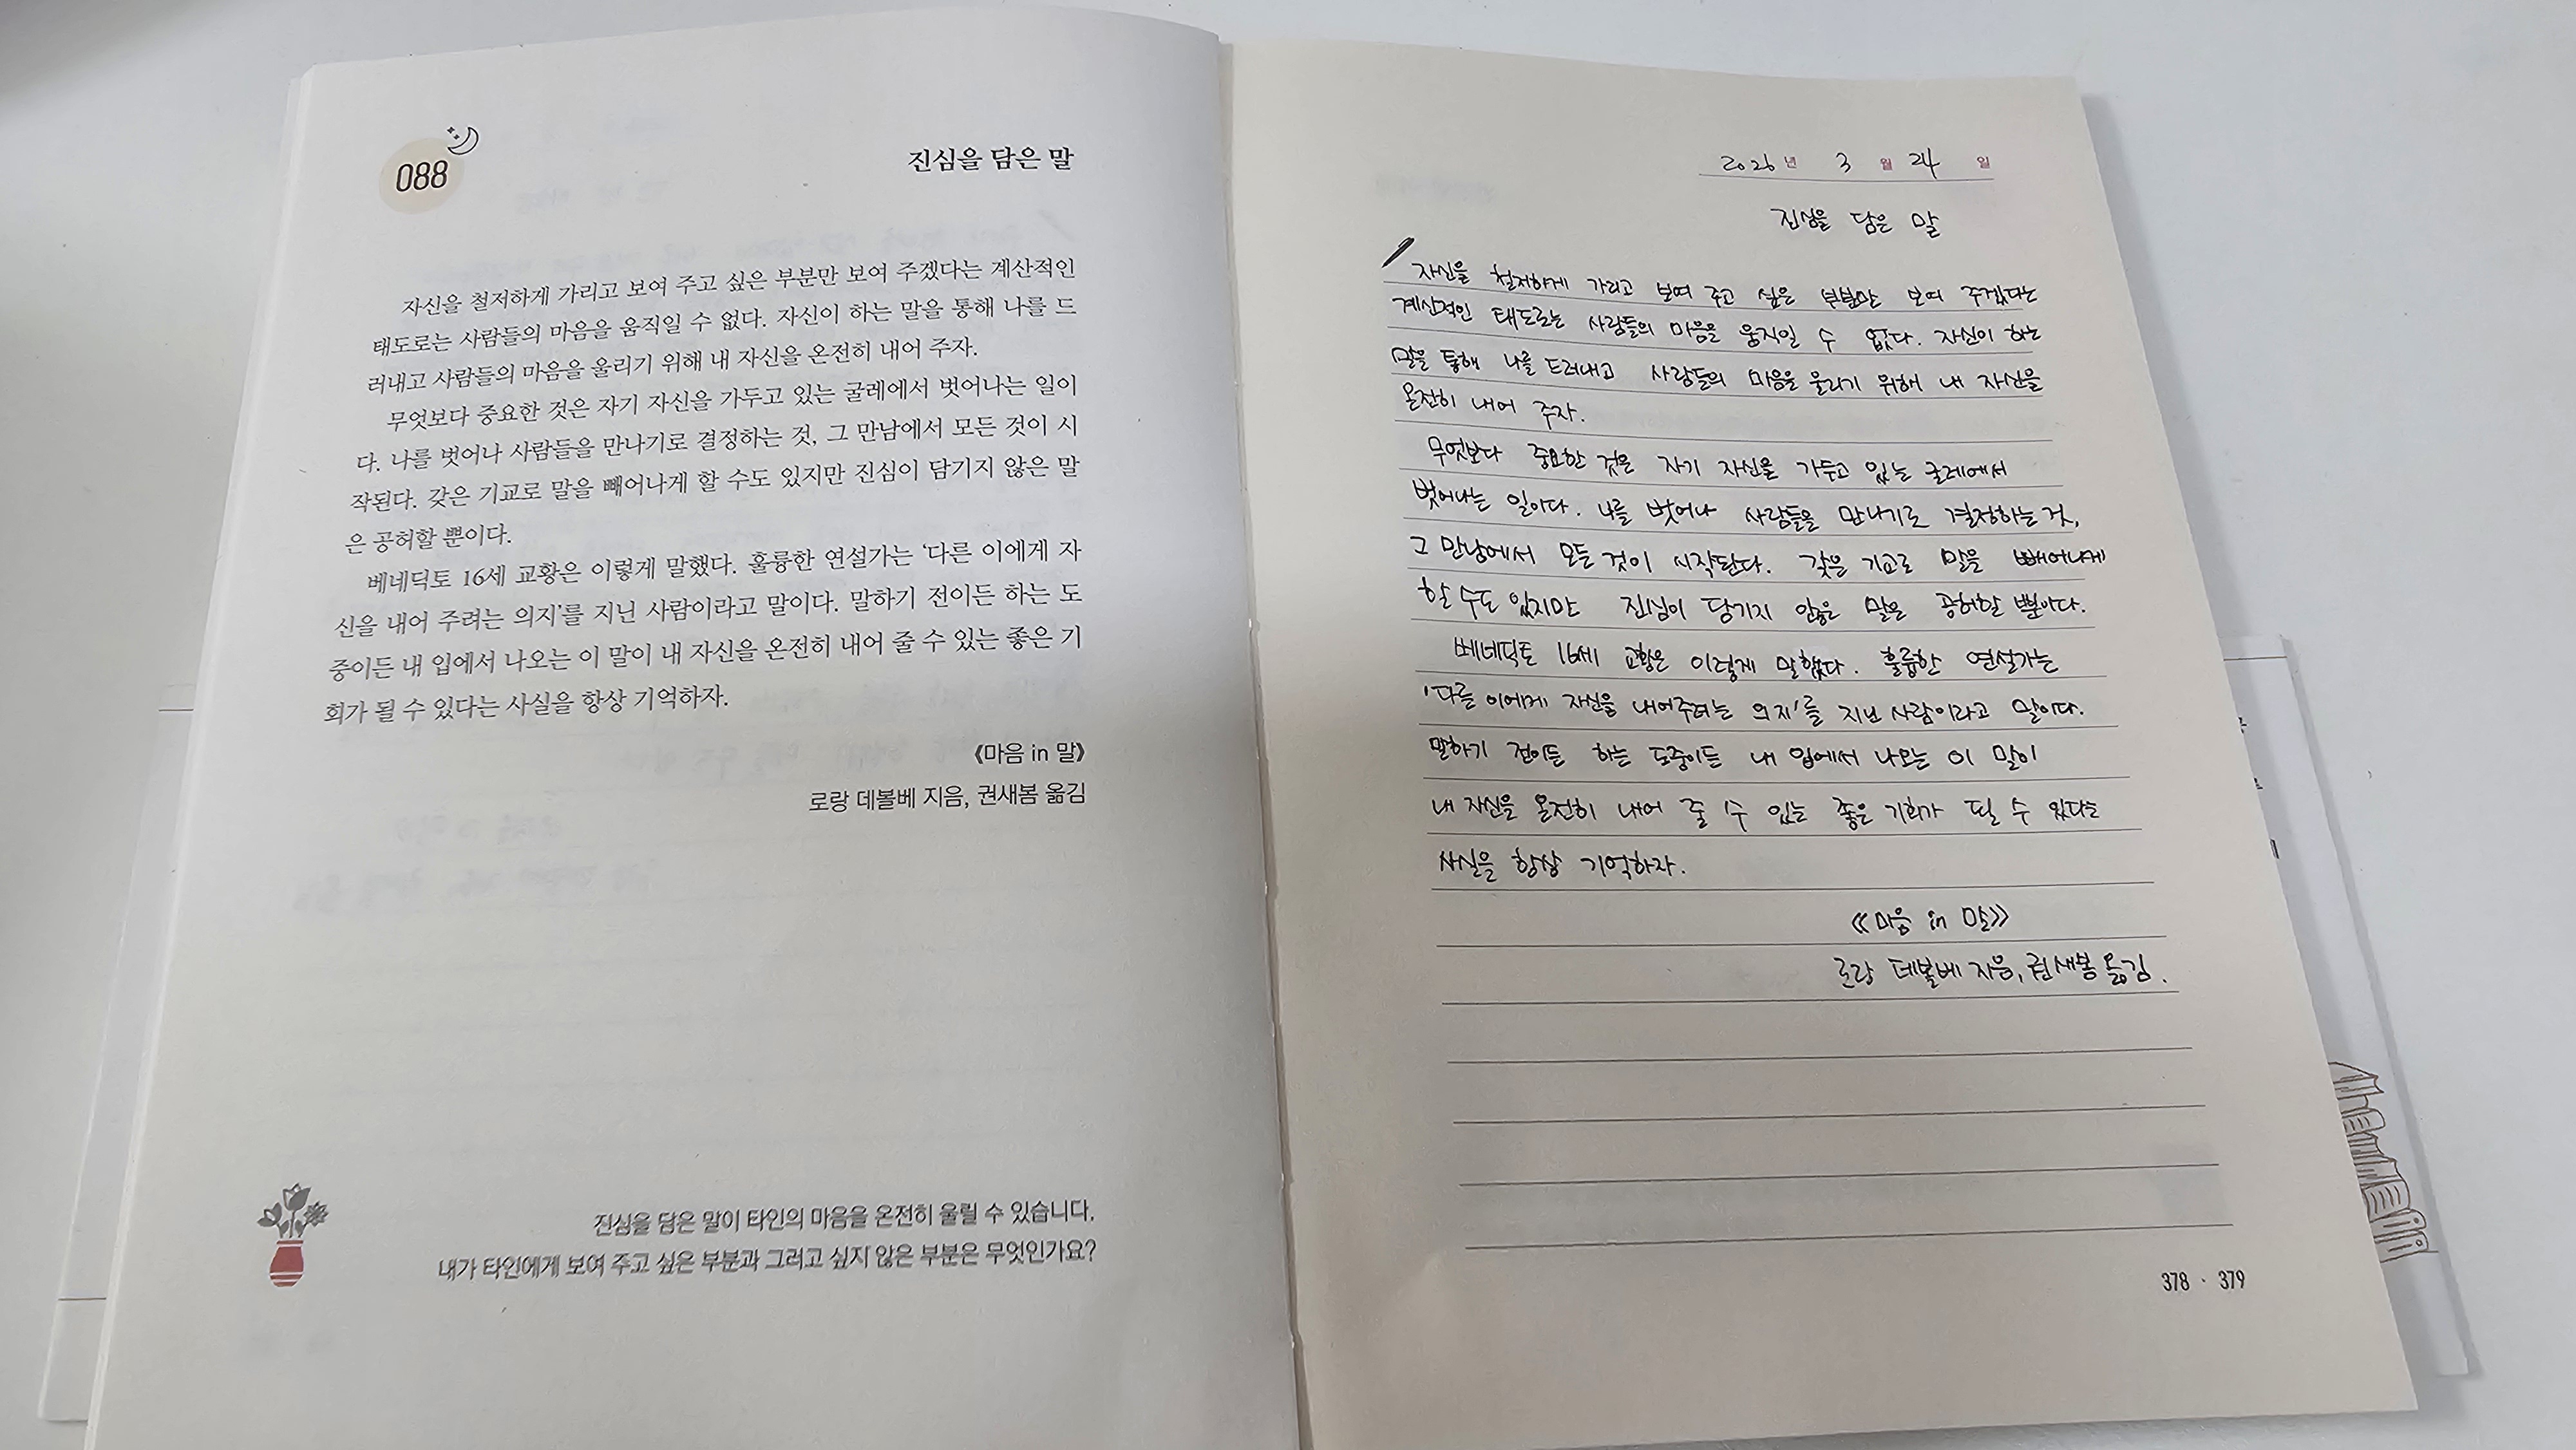 088
진심을 담은 말
자신을 철저하게 가리고 보여 주고 싶은 부분만 보여 주겠다는 계산적인
태도로는 사람들의 마음을 움직일 수 없다. 자신이 하는 말을 통해 나를 드
러내고 사람들의 마음을 울리기 위해 내 자신을 온전히 내어 주자.
무엇보다 중요한 것은 자기 자신을 가두고 있는 굴레에서 벗어나는 일이
다. 나를 벗어나 사람들을 만나기로 결정하는 것, 그 만남에서 모든 것이 시
작된다. 갖은 기교로 말을 빼어나게 할 수도 있지만 진심이 담기지 않은 말
은 공허할 뿐이다.
베네딕토 16세 교황은 이렇게 말했다. 훌륭한 연설가는 ‘다른 이에게 자
신을 내어 주려는 의지’를 지닌 사람이라고 말이다. 말하기 전이든 하는 도
중이든 내 입에서 나오는 이 말이 내 자신을 온전히 내어 줄 수 있는 좋은 기
회가 될 수 있다는 사실을 항상 기억하자.
《마음 in 말》
로랑 데볼베 지음, 권새봄 옮김
진심을 담은 말이 타인의 마음을 온전히 울릴 수 있습니다.
내가 타인에게 보여 주고 싶은 부분과 그러고 싶지 않은 부분은 무엇인가요?
2026년 3월 24일
진심을 담은 말
자신을 철저하게 가리고 보여 주고 싶은 부분만 보여 주겠다는
계산적인 태도로는 사람들의 마음을 움직일 수 없다. 자신이 하는
말을 통해 나를 드러내고 사람들의 마음을 울리기 위해 내 자신을
온전히 내어 주자.
무엇보다 중요한 것은 자기 자신을 가두고 있는 굴레에서
벗어나는 일이다. 나를 벗어나 사람들을 만나기로 결정하는 것,
그 만남에서 모든 것이 시작된다. 갖은 기교로 말을 빼어나게
할 수도 있지만 진심이 담기지 않은 말은 공허할 뿐이다.
베네딕토 16세 교황은 이렇게 말했다. 훌륭한 연설가는
'다른 이에게 자신을 내어주려는 의지'를 지닌 사람이라고 말이다.
말하기 전이든 하는 도중이든 내 입에서 나오는 이 말이
내 자신을 온전히 내어 줄 수 있는 좋은 기회가 될 수 있다는
사실을 항상 기억하자.
《마음 in 말》
로랑 데볼베 지음, 권새봄 옮김.
378 · 379